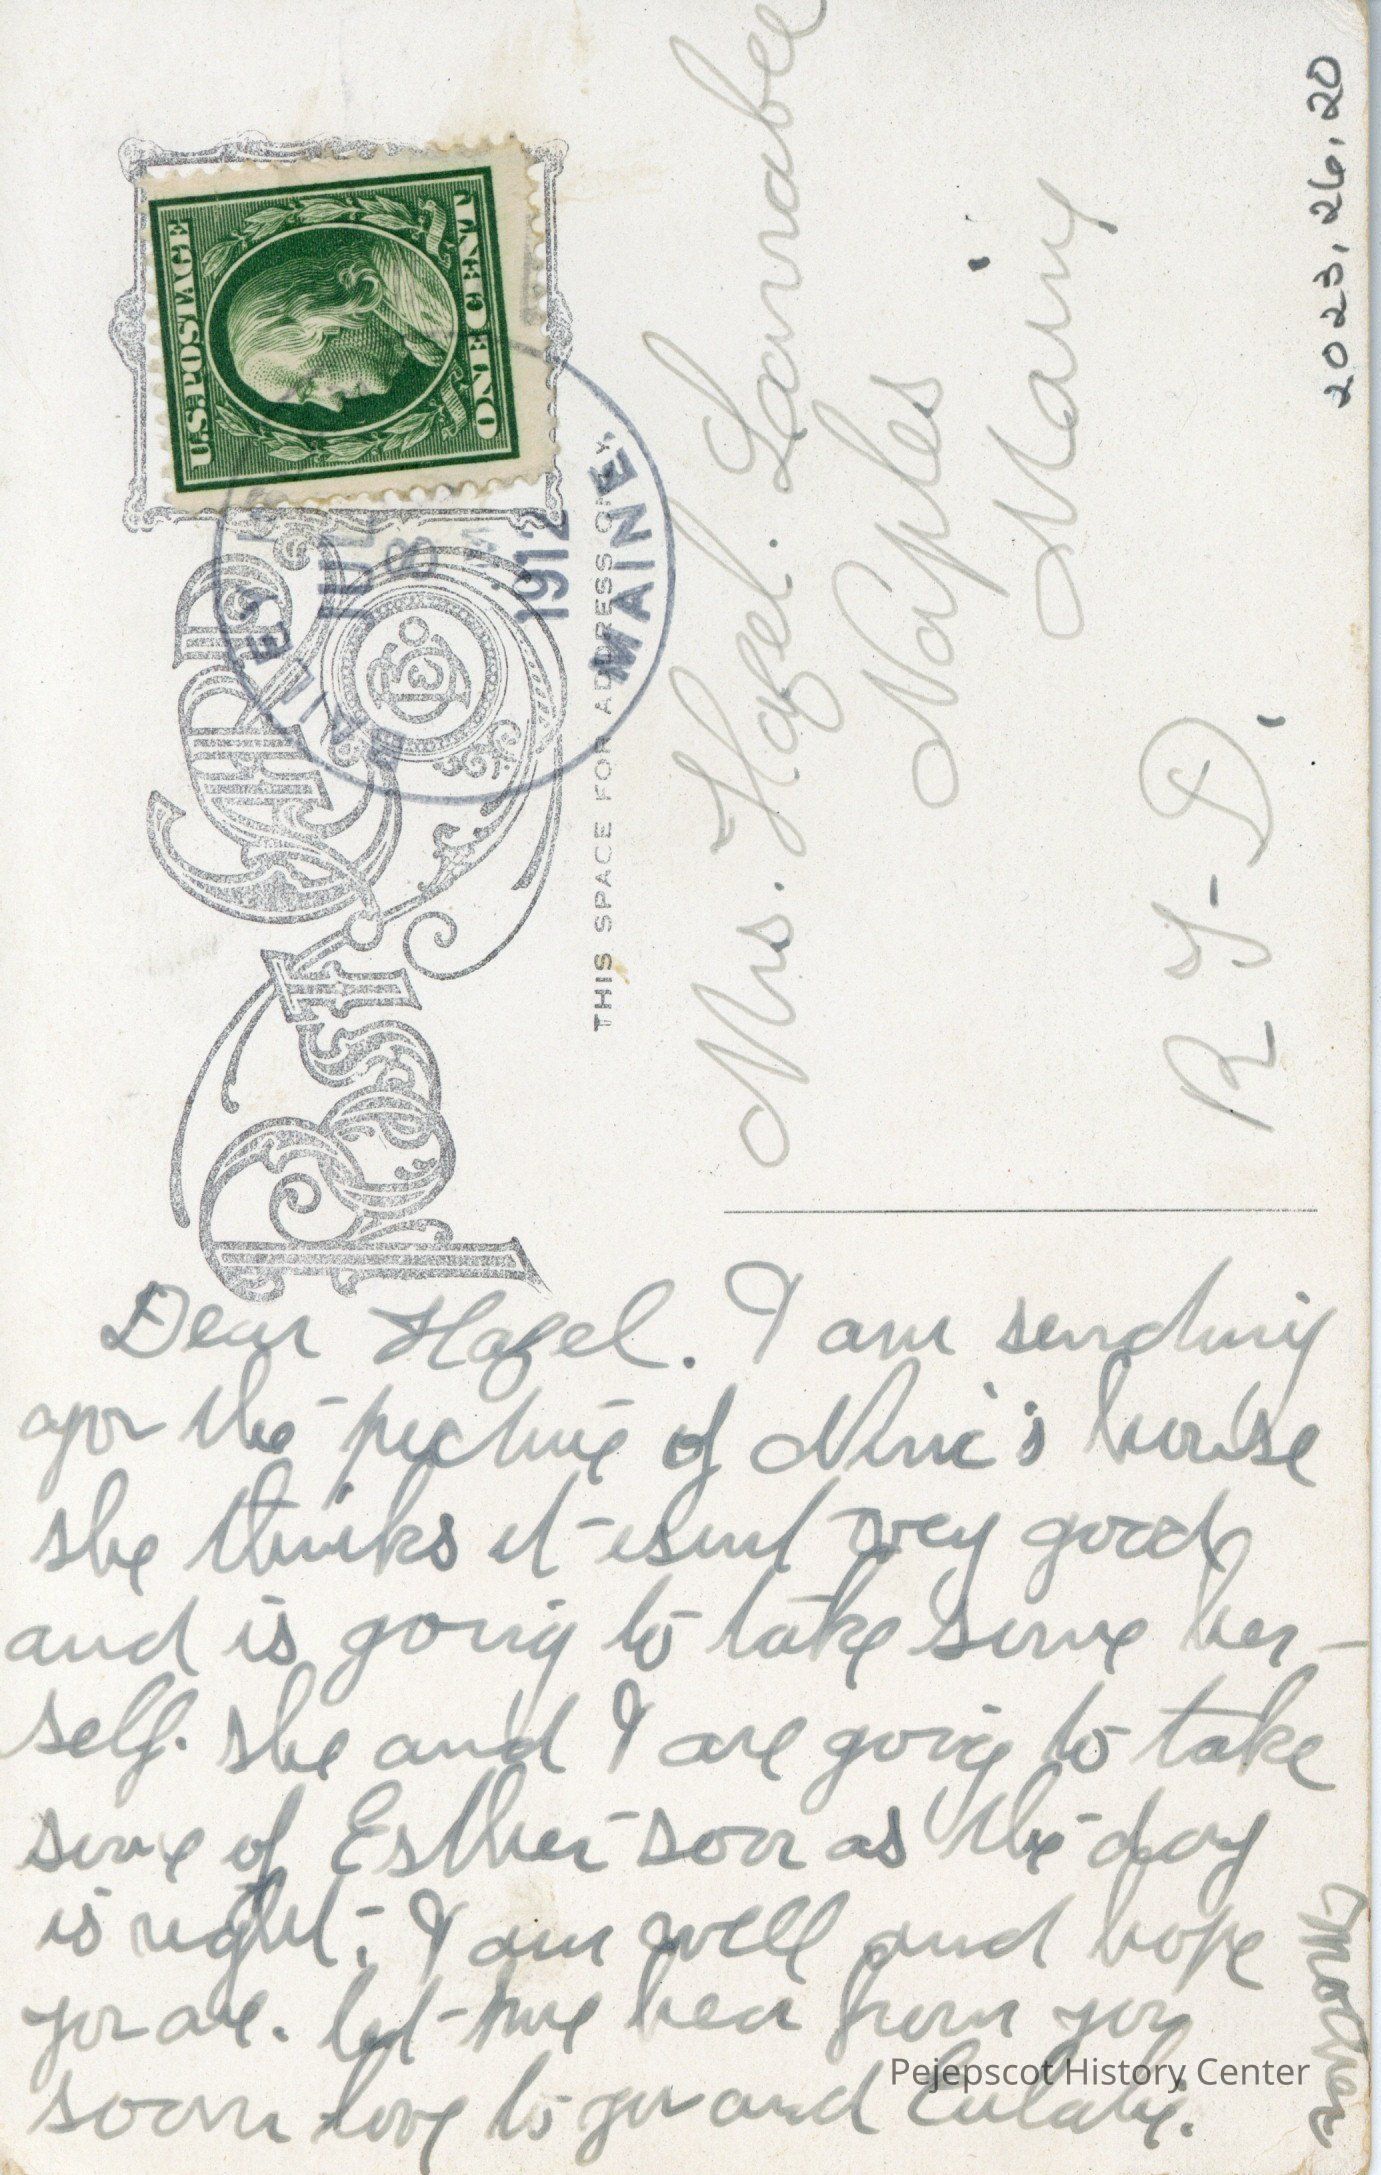 Dear Hazel. I am sending
you the picture of Nini's house
she thinks it isent very good
and is going to take some her-
self. she and I are going to take
some of Esther soon as the day
is right. I am well and hope
you are. let me hear from you
soon love to you and Eulalie.
Mother
POST CARD
THIS SPACE FOR ADDRESS ONLY
U.S. POSTAGE
ONE CENT
JUL
8
1912
MAINE
Mrs. Hazel. Larrabee
Naples
Main
R F D.
2023.26.20
Pejepscot History Center